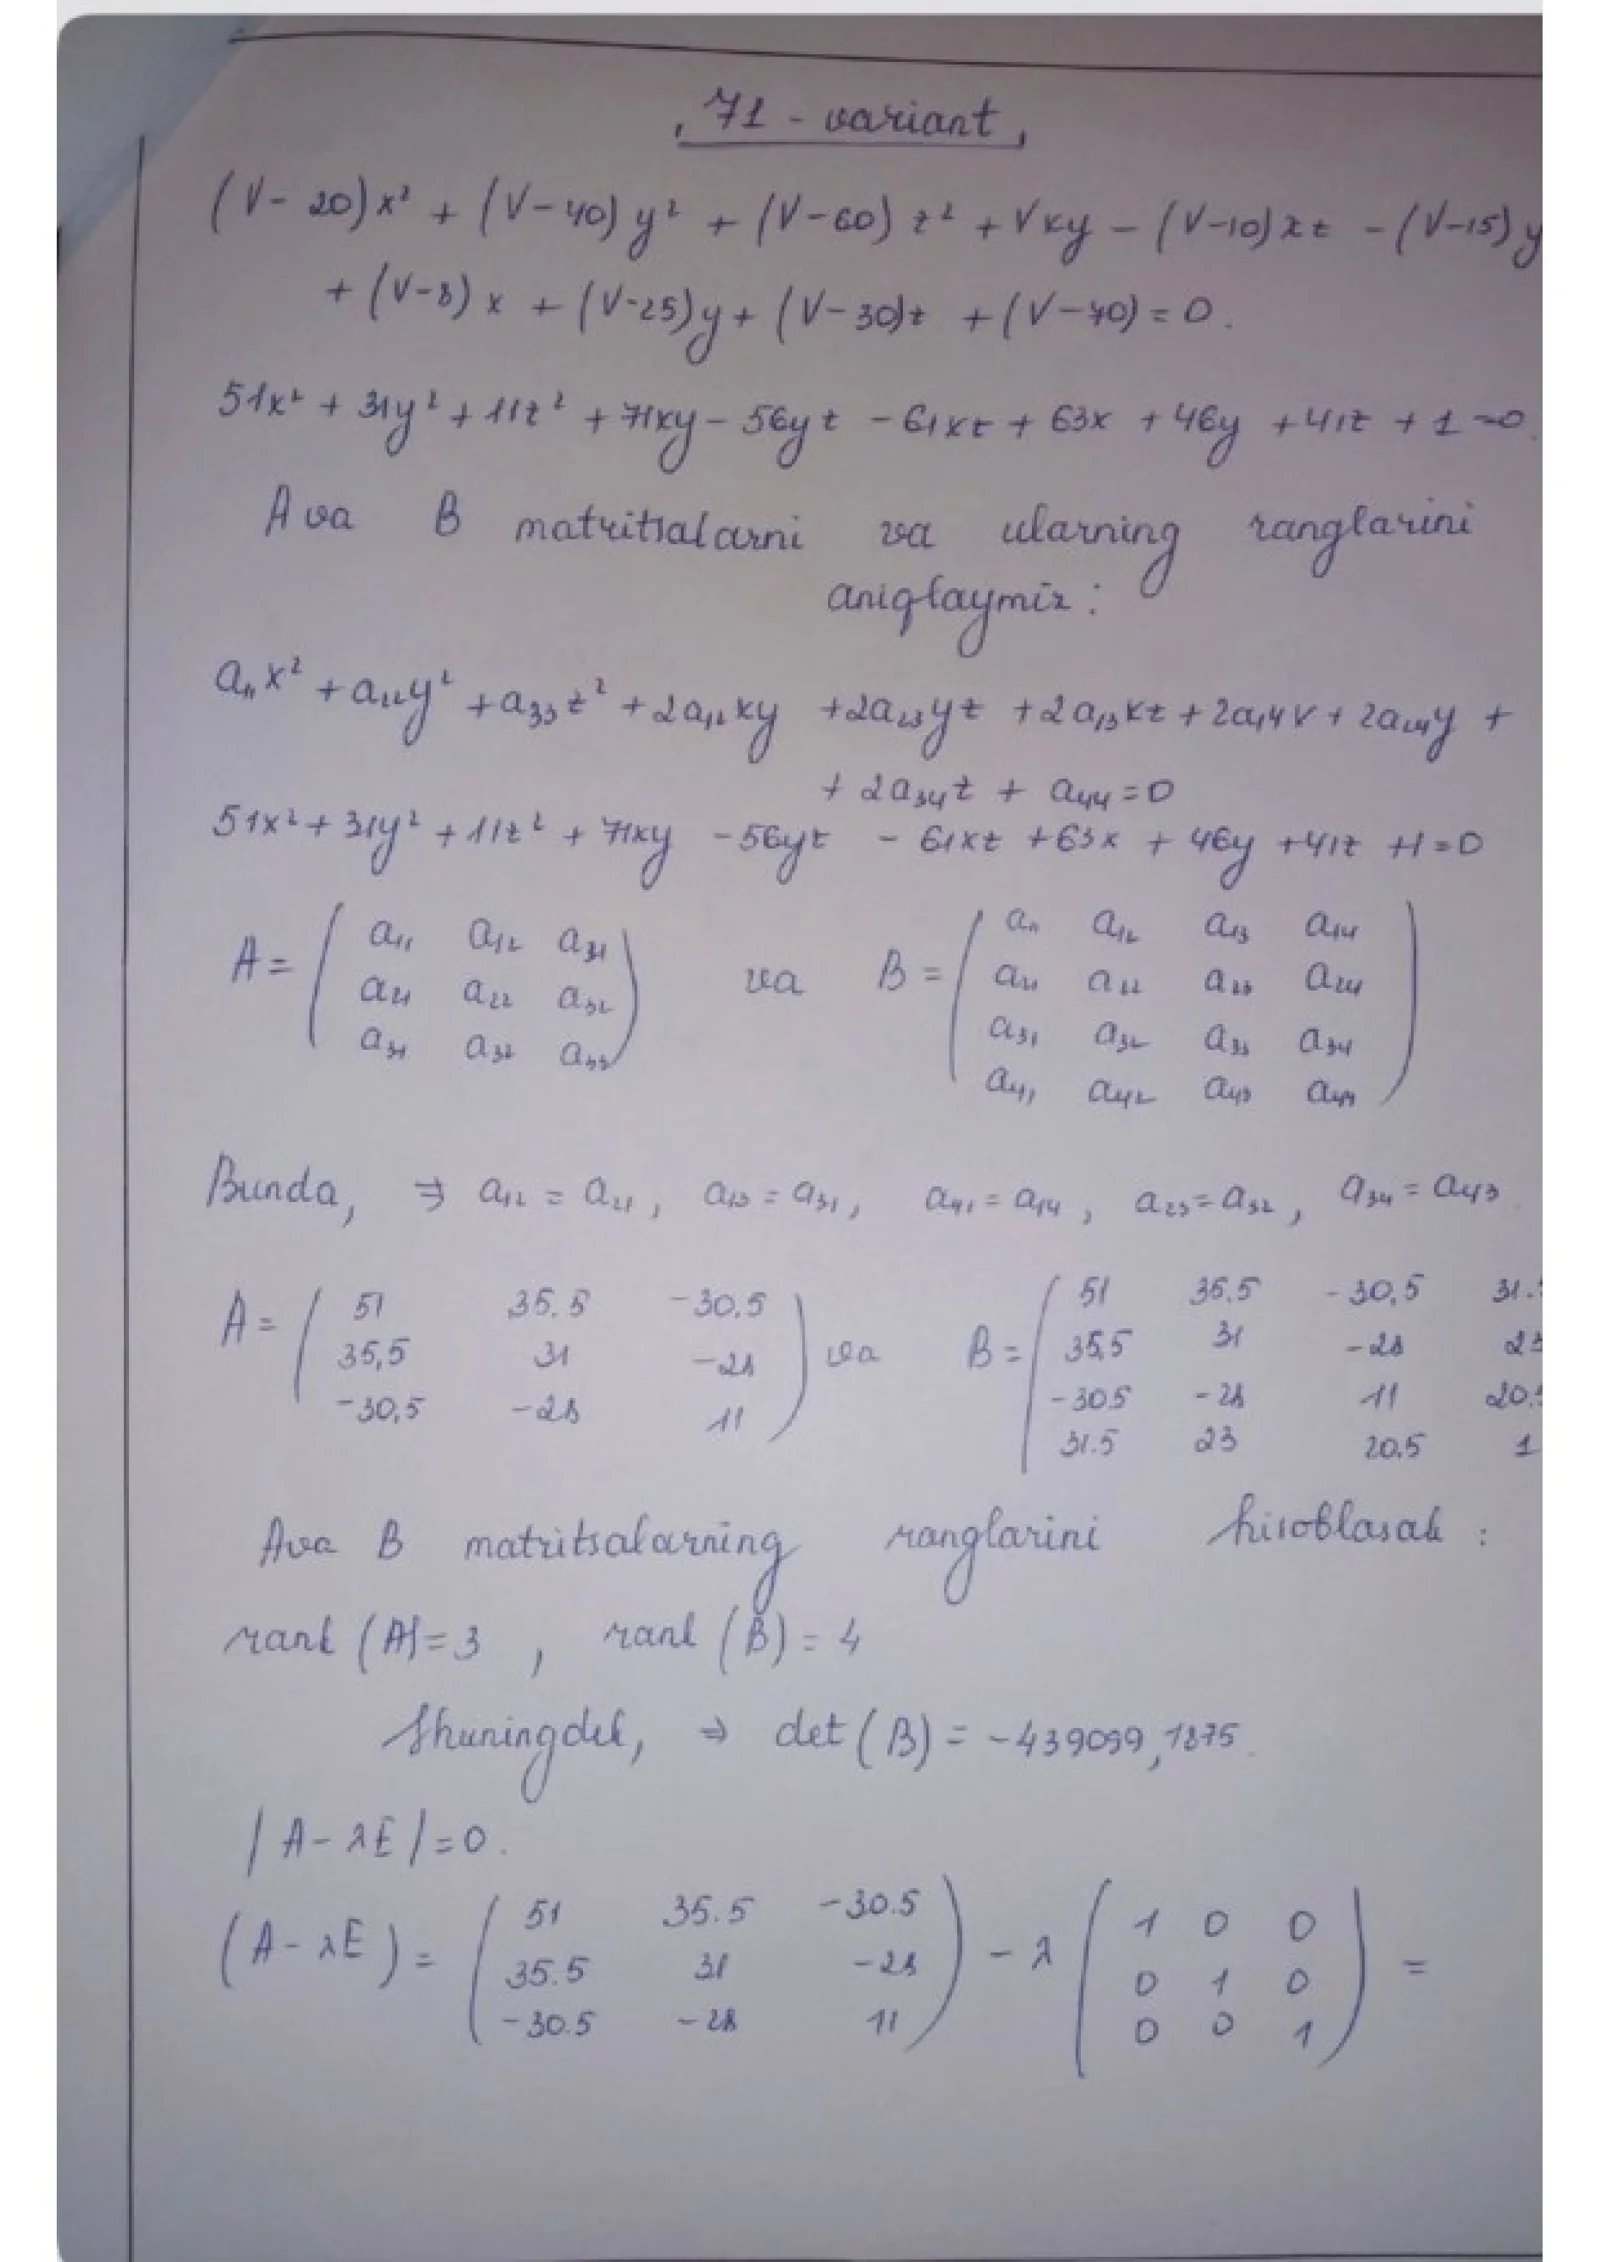 71 - variant
(V - 20)x² + (V - 40)y² + (V - 60)z² + Vxy - (V-10)xz - (V-15)y
+ (V-8)x + (V-25)y + (V-30)z + (V-70) = 0.
51x² + 31y² + 11z² + 71xy - 56yz - 61xz + 63x + 46y + 41z + 1 = 0.
A va B matritsalarni va ularning ranglarini
aniqlaymiz:
a₁₁x² + a₂₂y² + a₃₃z² + 2a₁₂xy + 2a₂₃yz + 2a₁₃xz + 2a₁₄x + 2a₂₄y +
+ 2a₃₄z + a₄₄ = 0
51x² + 31y² + 11z² + 71xy - 56yz - 61xz + 63x + 46y + 41z + 1 = 0
A = ( a₁₁ a₁₂ a₃₁ va B = ( a₁₁ a₁₂ a₁₃ a₁₄
a₂₁ a₂₂ a₃₂ a₂₁ a₂₂ a₂₃ a₂₄
a₃₁ a₃₂ a₃₃ ) a₃₁ a₃₂ a₃₃ a₃₄
a₄₁ a₄₂ a₄₃ a₄₄ )
Bunda, ⇒ a₁₂ = a₂₁, a₁₃ = a₃₁, a₄₁ = a₁₄, a₂₃ = a₃₂, a₃₄ = a₄₃.
A = ( 51 35.5 -30.5 va B = ( 51 35.5 -30,5 31.
35,5 31 -28 35,5 31 -28 23
-30,5 -28 11 ) -30.5 -28 11 20.5
31.5 23 20.5 1
A va B matritsalarning ranglarini hisoblasak:
rank (A) = 3, rank (B) = 4
Shuningdek, ⇒ det (B) = -439099,1875.
|A - λE| = 0.
(A - λE) = ( 51 35.5 -30.5 ) - λ ( 1 0 0 ) =
35.5 31 -28 0 1 0
-30.5 -28 11 0 0 1